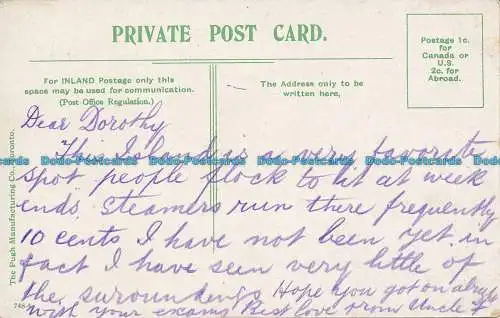 PRIVATE POST CARD.
Postage 1c.
for
Canada or
U.S.
2c. for
Abroad.
For INLAND Postage only this
space may be used for communication.
(Post Office Regulation.)
The Address only to be
written here,
Dear Dorothy
This Island is a very favorate
spot people flock to it at week
ends. Steamers run there frequently
10 cents I have not been yet. in
fact I have seen very little of
the suroundings Hope you got on alright
with your exams Best love from Uncle F
The Pugh Manufacturing Co., Toronto.
748
Dodo-Postcards Dodo-Postcards Dodo-Postcards Dodo-Postcards